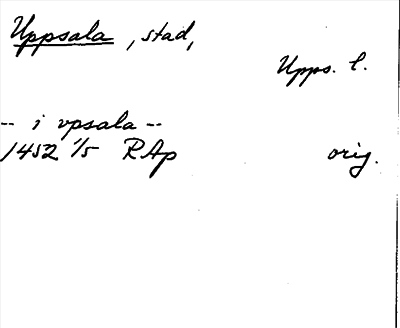 Uppsala, stad,
Upps. l.
-- i vpsala --
1452 1/5 RAp orig.